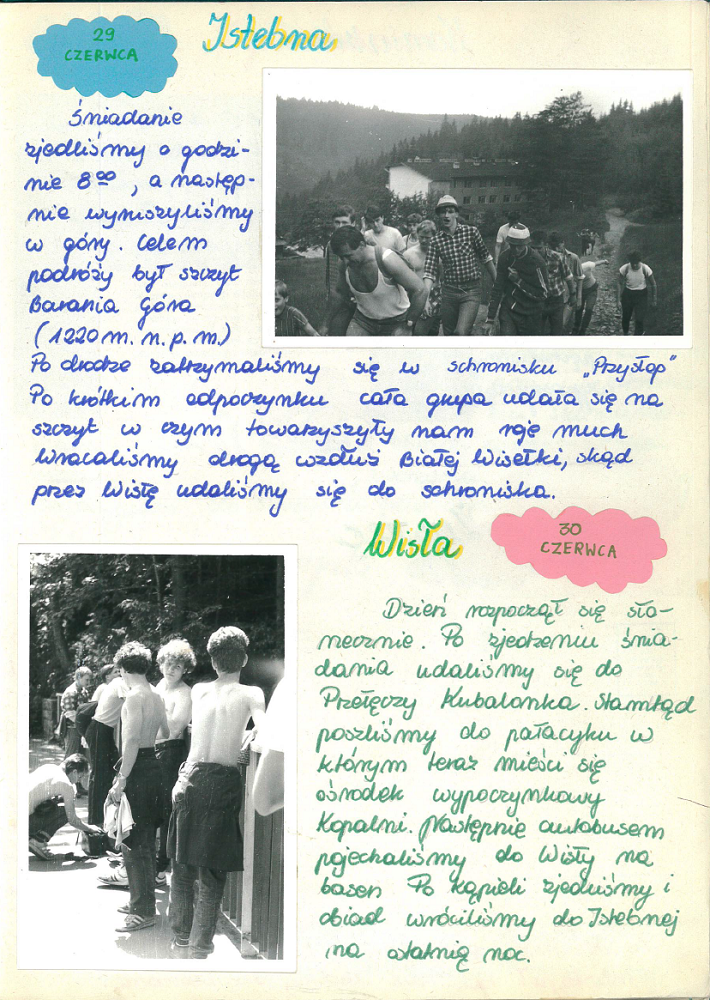 29
CZERWCA
Istebna
Śniadanie
zjedliśmy o godzi-
nie 8⁰⁰, a następ-
nie wyruszyliśmy
w góry. Celem
podróży był szczyt
Barania Góra
(1220 m. n. p. m.)
Po drodze zatrzymaliśmy się w schronisku „Przysłop"
Po krótkim odpoczynku cała grupa udała się na
szczyt w czym towarzyszyły nam roje much
Wracaliśmy drogą wzdłuż Białej Wisełki, skąd
przez Wisłę udaliśmy się do schroniska.
Wisła
30
CZERWCA
Dzień rozpoczął się sło-
necznie. Po zjedzeniu śnia-
dania udaliśmy się do
Przełęczy Kubalonka. Stamtąd
poszliśmy do pałacyku w
którym teraz mieści się
ośrodek wypoczynkowy
Kopalni. Następnie autobusem
pojechaliśmy do Wisły na
basen Po kąpieli zjedliśmy i
obiad wróciliśmy do Istebnej
na ostatnią noc.